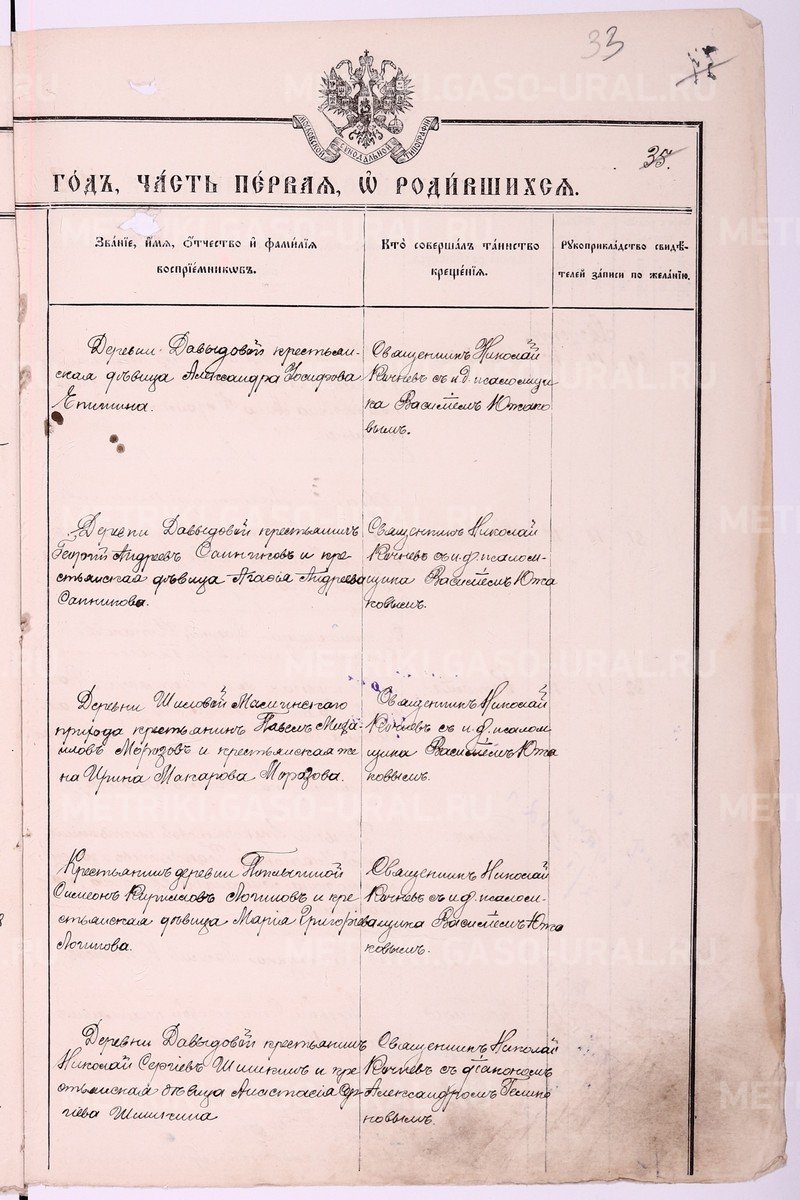 33
МОСКОВСКОЙ СѴНОДАЛЬНОЙ ТИПОГРАФІИ
35.
ГО́ДЪ, ЧА́СТЬ ПЕ́РВАЯ, Ѽ РОДИ́ВШИХСЯ.
Зва́нїе, и́мя, ѻ́тчество и҆ фами́лїя
воспрїе́мникѡвъ.
Кто̀ соверша́лъ та́инство
креще́нїя.
Рꙋкоприкла́дство свидѣ́-
телей за́писи по жела́нїю.
Деревни Давыдовой крестьян-
ская дѣвица Александра Іосифова
Епишина.
Священникъ Николай
Кочневъ съ и.д. псаломщи
ка Василіемъ Южако
вымъ.
Деревни Давыдовой крестьянинъ
Георгій Андреевъ Санниковъ и кре
стьянская дѣвица Агафія Андреева
Санникова.
Священникъ Николай
Кочневъ съ и.д. псалом-
щика Василіемъ Южа
ковымъ.
Деревни Шиловой
прихода крестьянинъ Павелъ Михаи-
ловъ Морозовъ и крестьянская же
на Ирина Макарова Морозова.
Священникъ Николай
Кочневъ съ и.д. псалом
щика Василіемъ Южа
ковымъ.
Крестьянинъ деревни
Симеонъ Кирилловъ Логиновъ и кре
стьянская дѣвица Марія Григоріева
Логинова.
Священникъ Николай
Кочневъ съ и.д. псалом-
щика Василіемъ Южа
ковымъ.
Деревни Давыдовой крестьянинъ
Николай Сергіевъ Шишкинъ и кре
стьянская дѣвица Анастасія Сер-
гіева Шишкина
Священникъ Николай
Кочневъ съ діакономъ
Александромъ
ковымъ.
METRIKI.GASO-URAL.RU